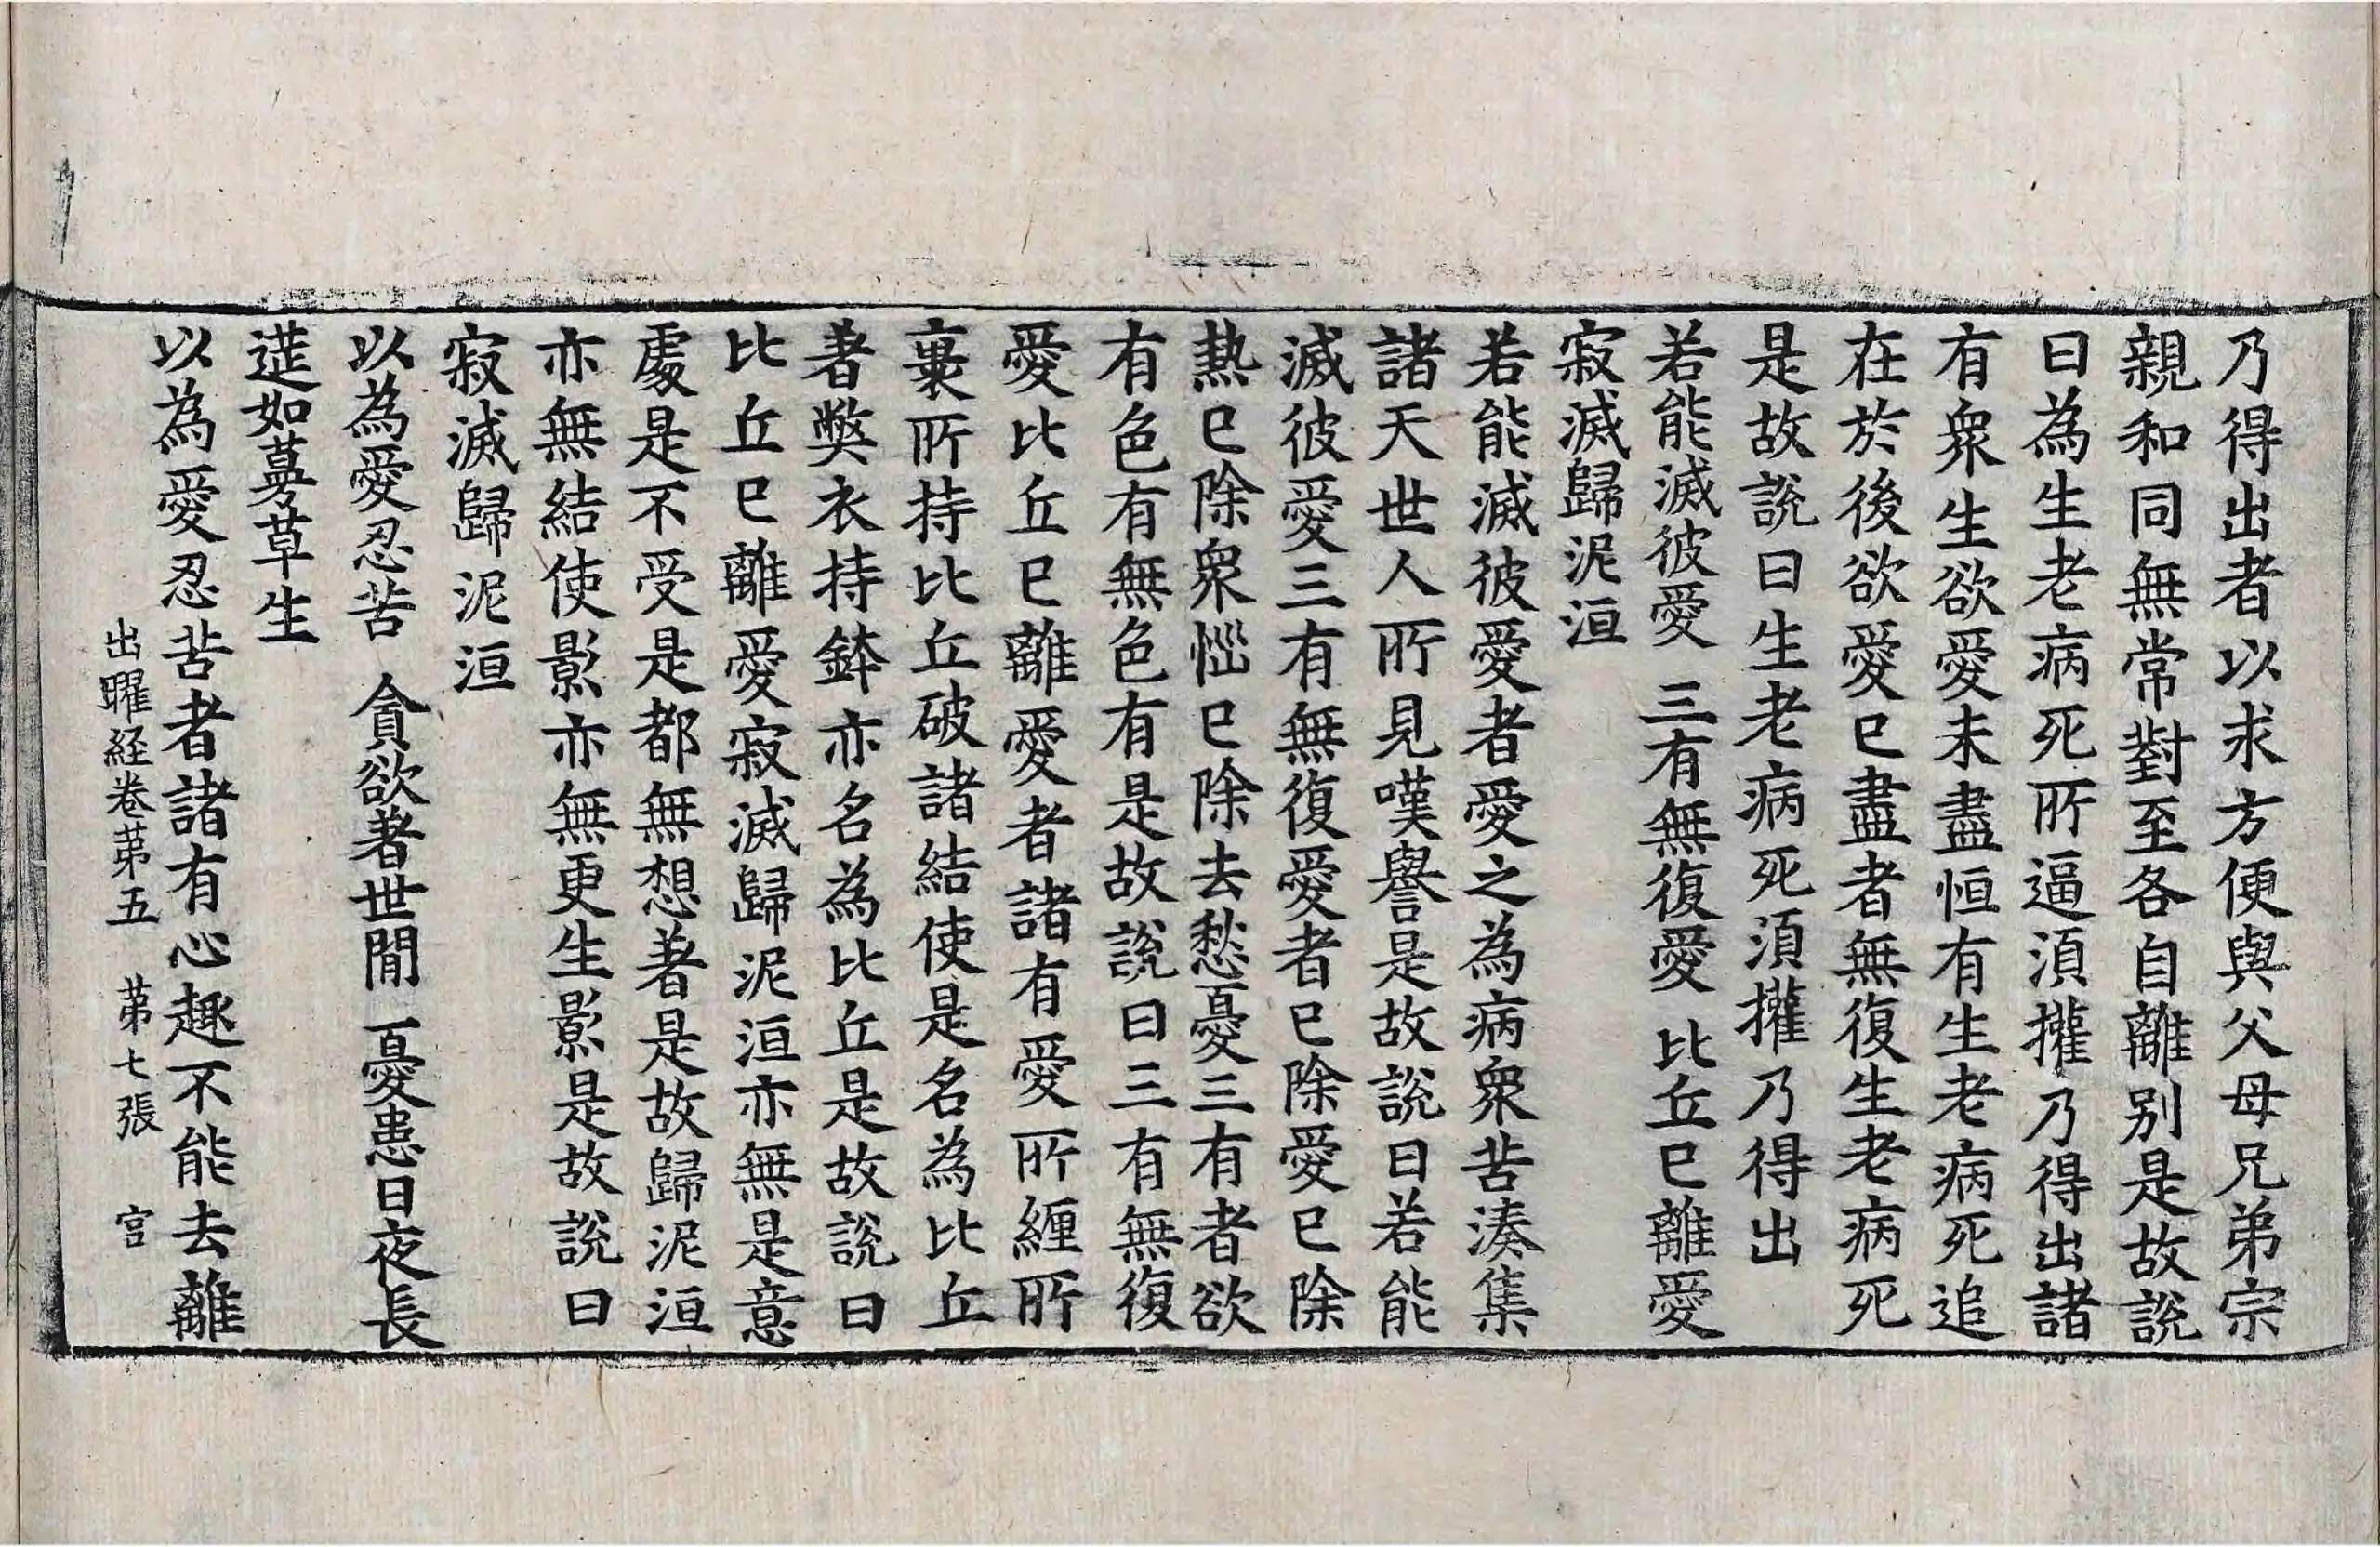 乃得出者以求方便與父母兄弟宗
親和同無常對至各自離别是故說
曰為生老病死所逼湏攉乃得出諸
有衆生欲愛未盡恒有生老病死追
在於後欲愛已盡者無復生老病死
是故說曰生老病死湏攉乃得出
若能滅彼愛　三有無復愛　比丘已離愛
寂滅歸泥洹
若能滅彼愛者愛之為病衆苦湊集
諸天世人所見嘆譽是故說曰若能
滅彼愛三有無復愛者已除愛已除
熱已除衆惱已除去愁憂三有者欲
有色有無色有是故說曰三有無復
愛比丘已離愛者諸有愛所纏所
裹所持比丘破諸結使是名為比丘
著弊衣持鉢亦名為比丘是故說曰
比丘已離愛寂滅歸泥洹亦無是意
處是不受是都無想著是故歸泥洹
亦無結使影亦無更生影是故說曰
寂滅歸泥洹
以為愛忍苦　貪欲著世間　憂患日夜長
莚如蔓草生
以為愛忍苦者諸有心趣不能去離
出曜経卷苐五　苐七張　宫